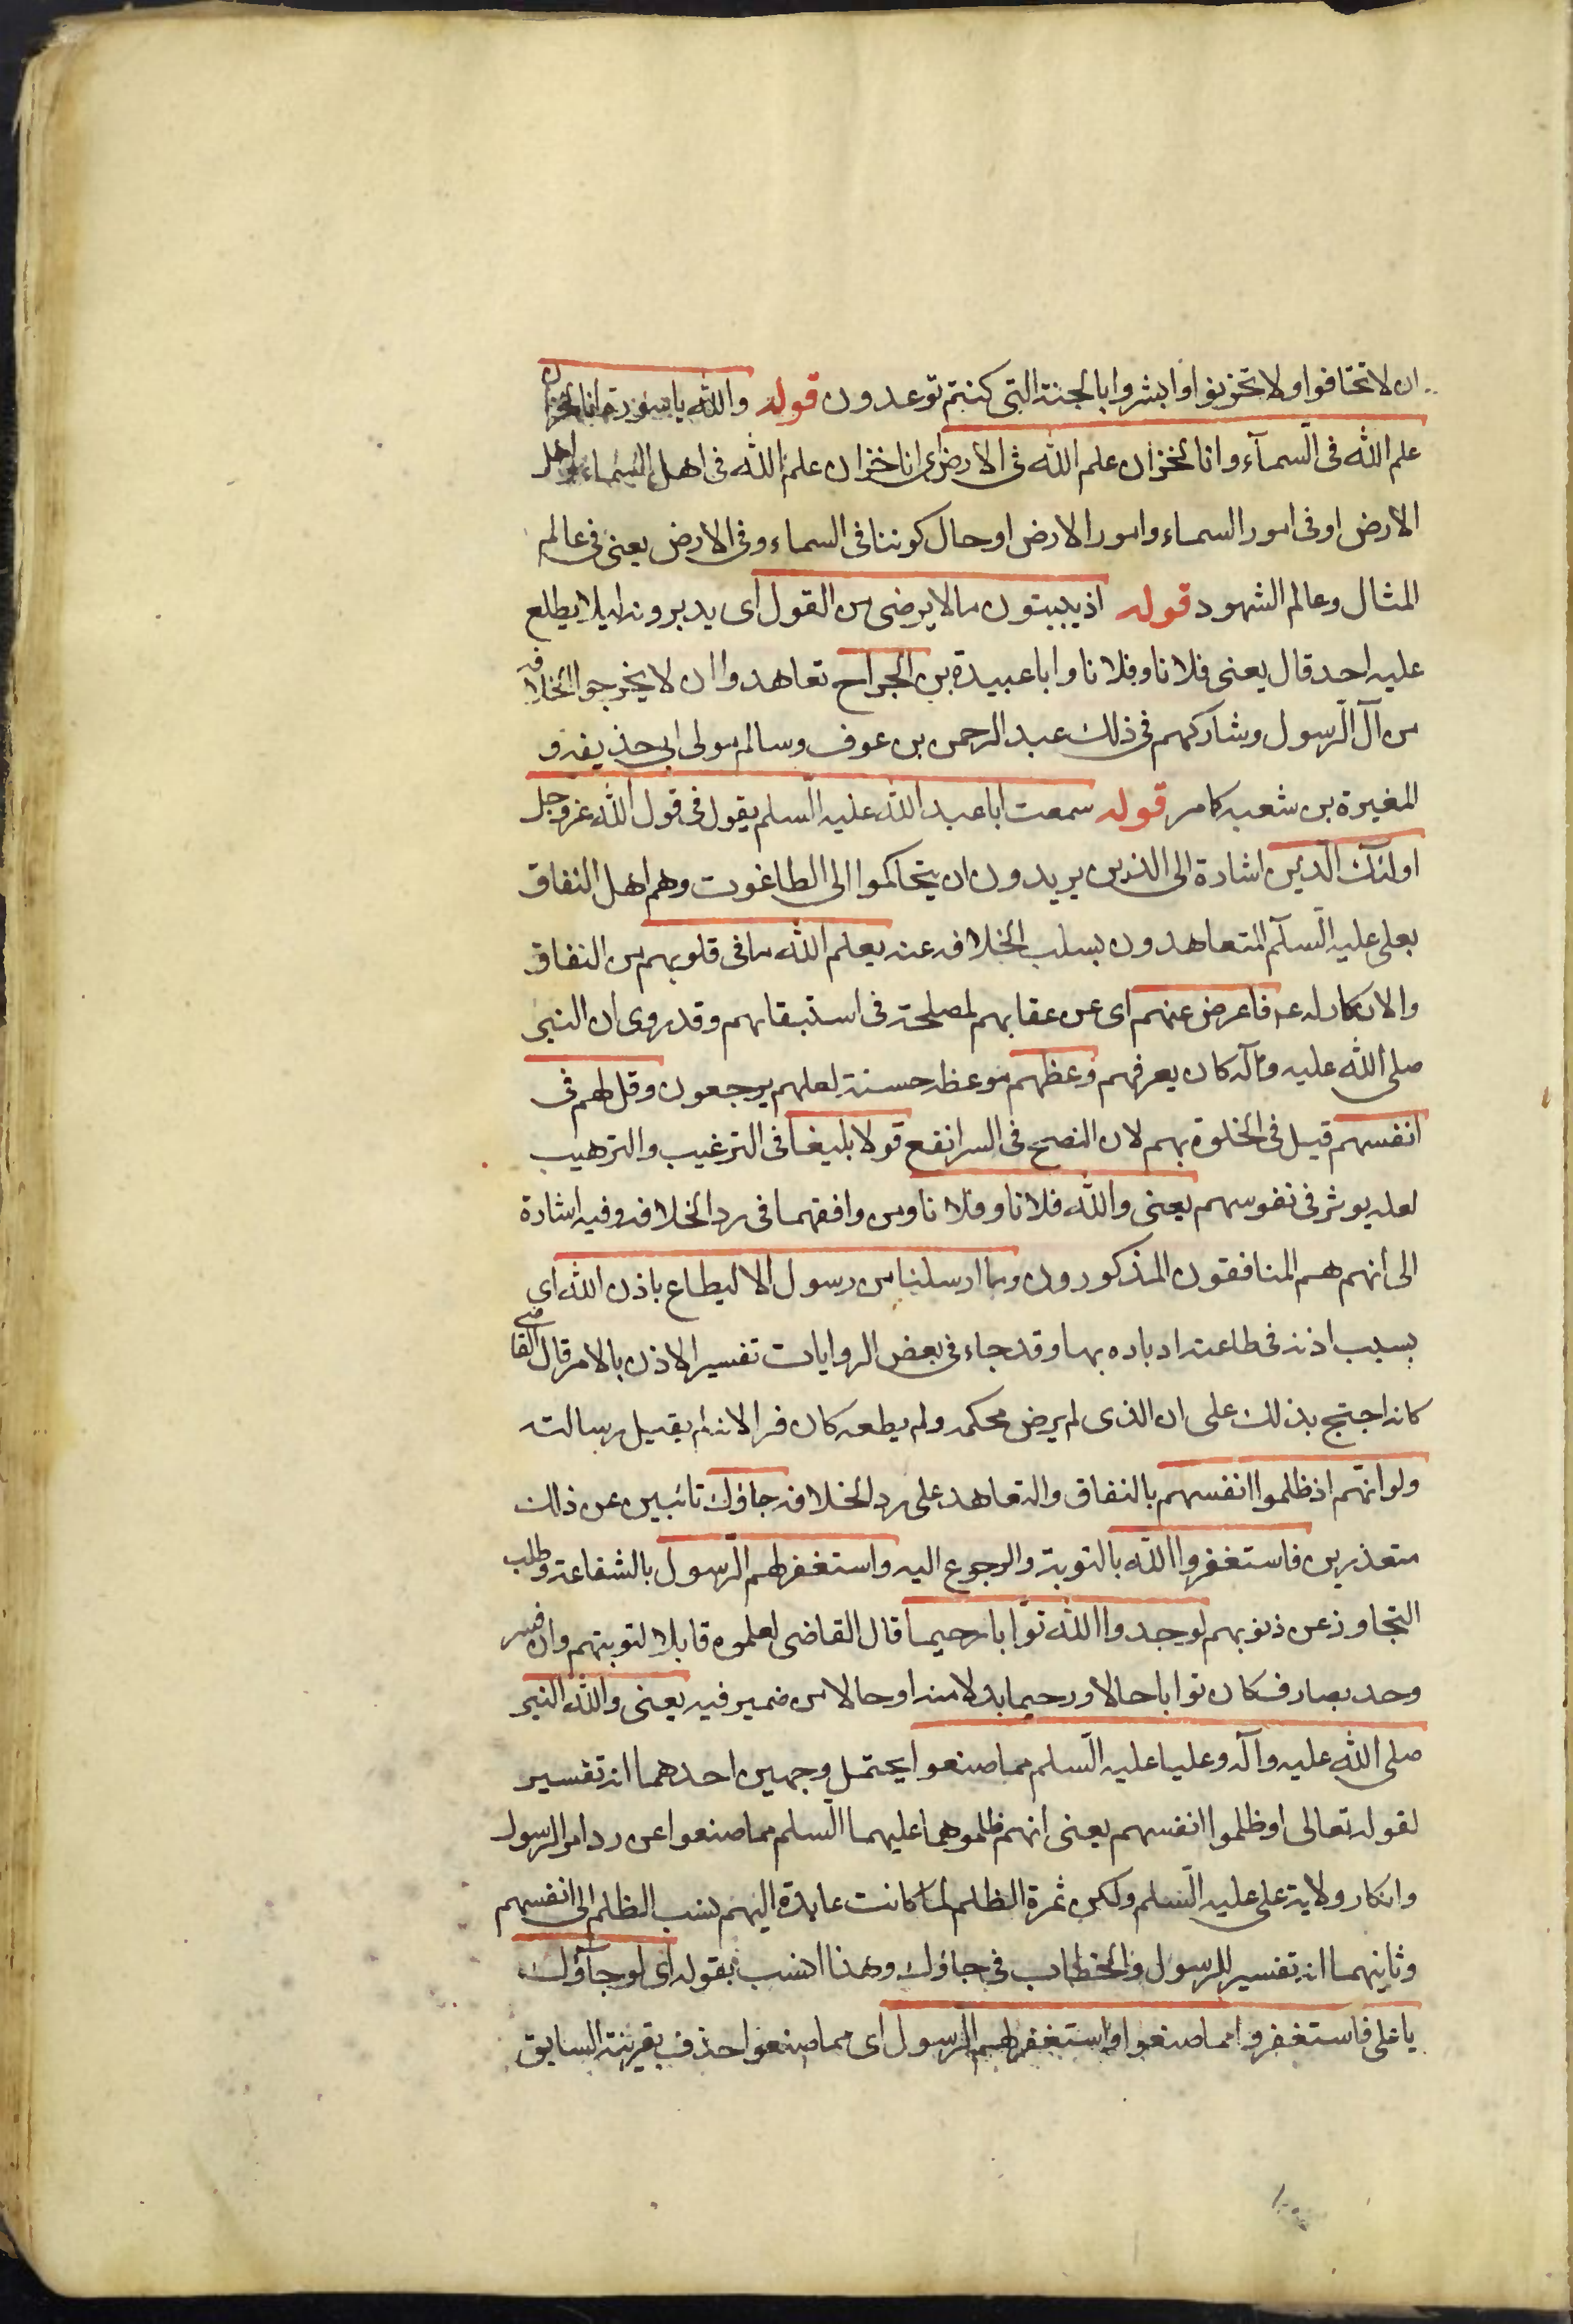 ان لا تخافوا ولا تحزنوا وابشروا بالجنة التى كنتم توعدون قوله والله يا سورة انا لخزان
علم الله فى السمآء وانا لخزان علم الله فى الارض اى انا خزان علم الله فى اهل السماء واهل
الارض او فى امور السماء وامور الارض او حال كوننا فى السماء وفى الارض يعنى فى عالم
المثال وعالم الشهود قوله اذ يبيتون ما لا يرضى من القول اى يدبرونه ليلا يطلع
عليه احد قال يعنى فلانا وفلانا وابا عبيدة بن الجراح تعاهدوا ان لا يخرجوا الخلافه
من آل الرسول وشاركهم فى ذلك عبد الرحمن بن عوف وسالم مولى ابى حذيفه و
المغيرة بن شعبه كما مر قوله سمعت ابا عبد الله عليه السلم يقول فى قول الله عز وجل
اولئك الذين اشارة الى الذين يريدون ان يتحاكموا الى الطاغوت وهم اهل النفاق
بعلى عليه السلم المتعاهدون بسلب الخلافه عنه يعلم الله ما فى قلوبهم من النفاق
والانكار له عم فاعرض عنهم اى عن عقابهم لمصلحة فى استبقائهم وقد روى ان النبى
صلى الله عليه وآله كان يعرفهم وعظهم موعظه حسنة لعلهم يرجعون وقل لهم فى
انفسهم قيل فى الخلوة بهم لان النصح فى السر انفع قولا بليغا فى الترغيب والترهيب
لعله يوثر فى نفوسهم يعنى والله فلانا وفلانا ومن وافقهما فى رد الخلافه وفيه اشارة
الى انهم هم المنافقون المذكورون وما ارسلنا من رسول الا ليطاع باذن الله اى
بسبب اذنه فى طاعته او باده بها وقد جاء فى بعض الروايات تفسير الاذن بالامر قال القاضى
كانه احتج بذلك على ان الذى لم يرض بحكمه ولم يطعه كان فرا لانه لم يقبل رسالته
ولو انهم اذ ظلموا انفسهم بالنفاق والتعاهد على رد الخلافه جاؤك تائبين عن ذلك
متعذرين فاستغفروا الله بالتوبة والرجوع اليه واستغفر لهم الرسول بالشفاعة وطلب
التجاوز عن ذنوبهم لوجدوا الله توابا رحيما قال القاضى لعلموه قابلا لتوبتهم وان فسر
وجد بصادف كان توابا حالا ورحيما بدلا منه او حالا من ضمير فيه يعنى والله النبى
صلى الله عليه وآله وعليا عليه السلم مما صنعوا يحتمل وجهين احدهما انه تفسير
لقوله تعالى او ظلموا انفسهم يعنى انهم ظلموهما عليهما السلم مما صنعوا عن رد امر الرسول
وانكار ولاية على عليه السلم ولكن ثمرة الظلم لما كانت عايدة اليهم نسب الظلم الى انفسهم
وثانيهما انه تفسير للرسول والخطاب فى جاؤك وهذا انسب بقوله اى لو جآؤك
يا على فاستغفروا مما صنعوا واستغفر لهم الرسول اى مما صنعوا حذف بقرينة السابق